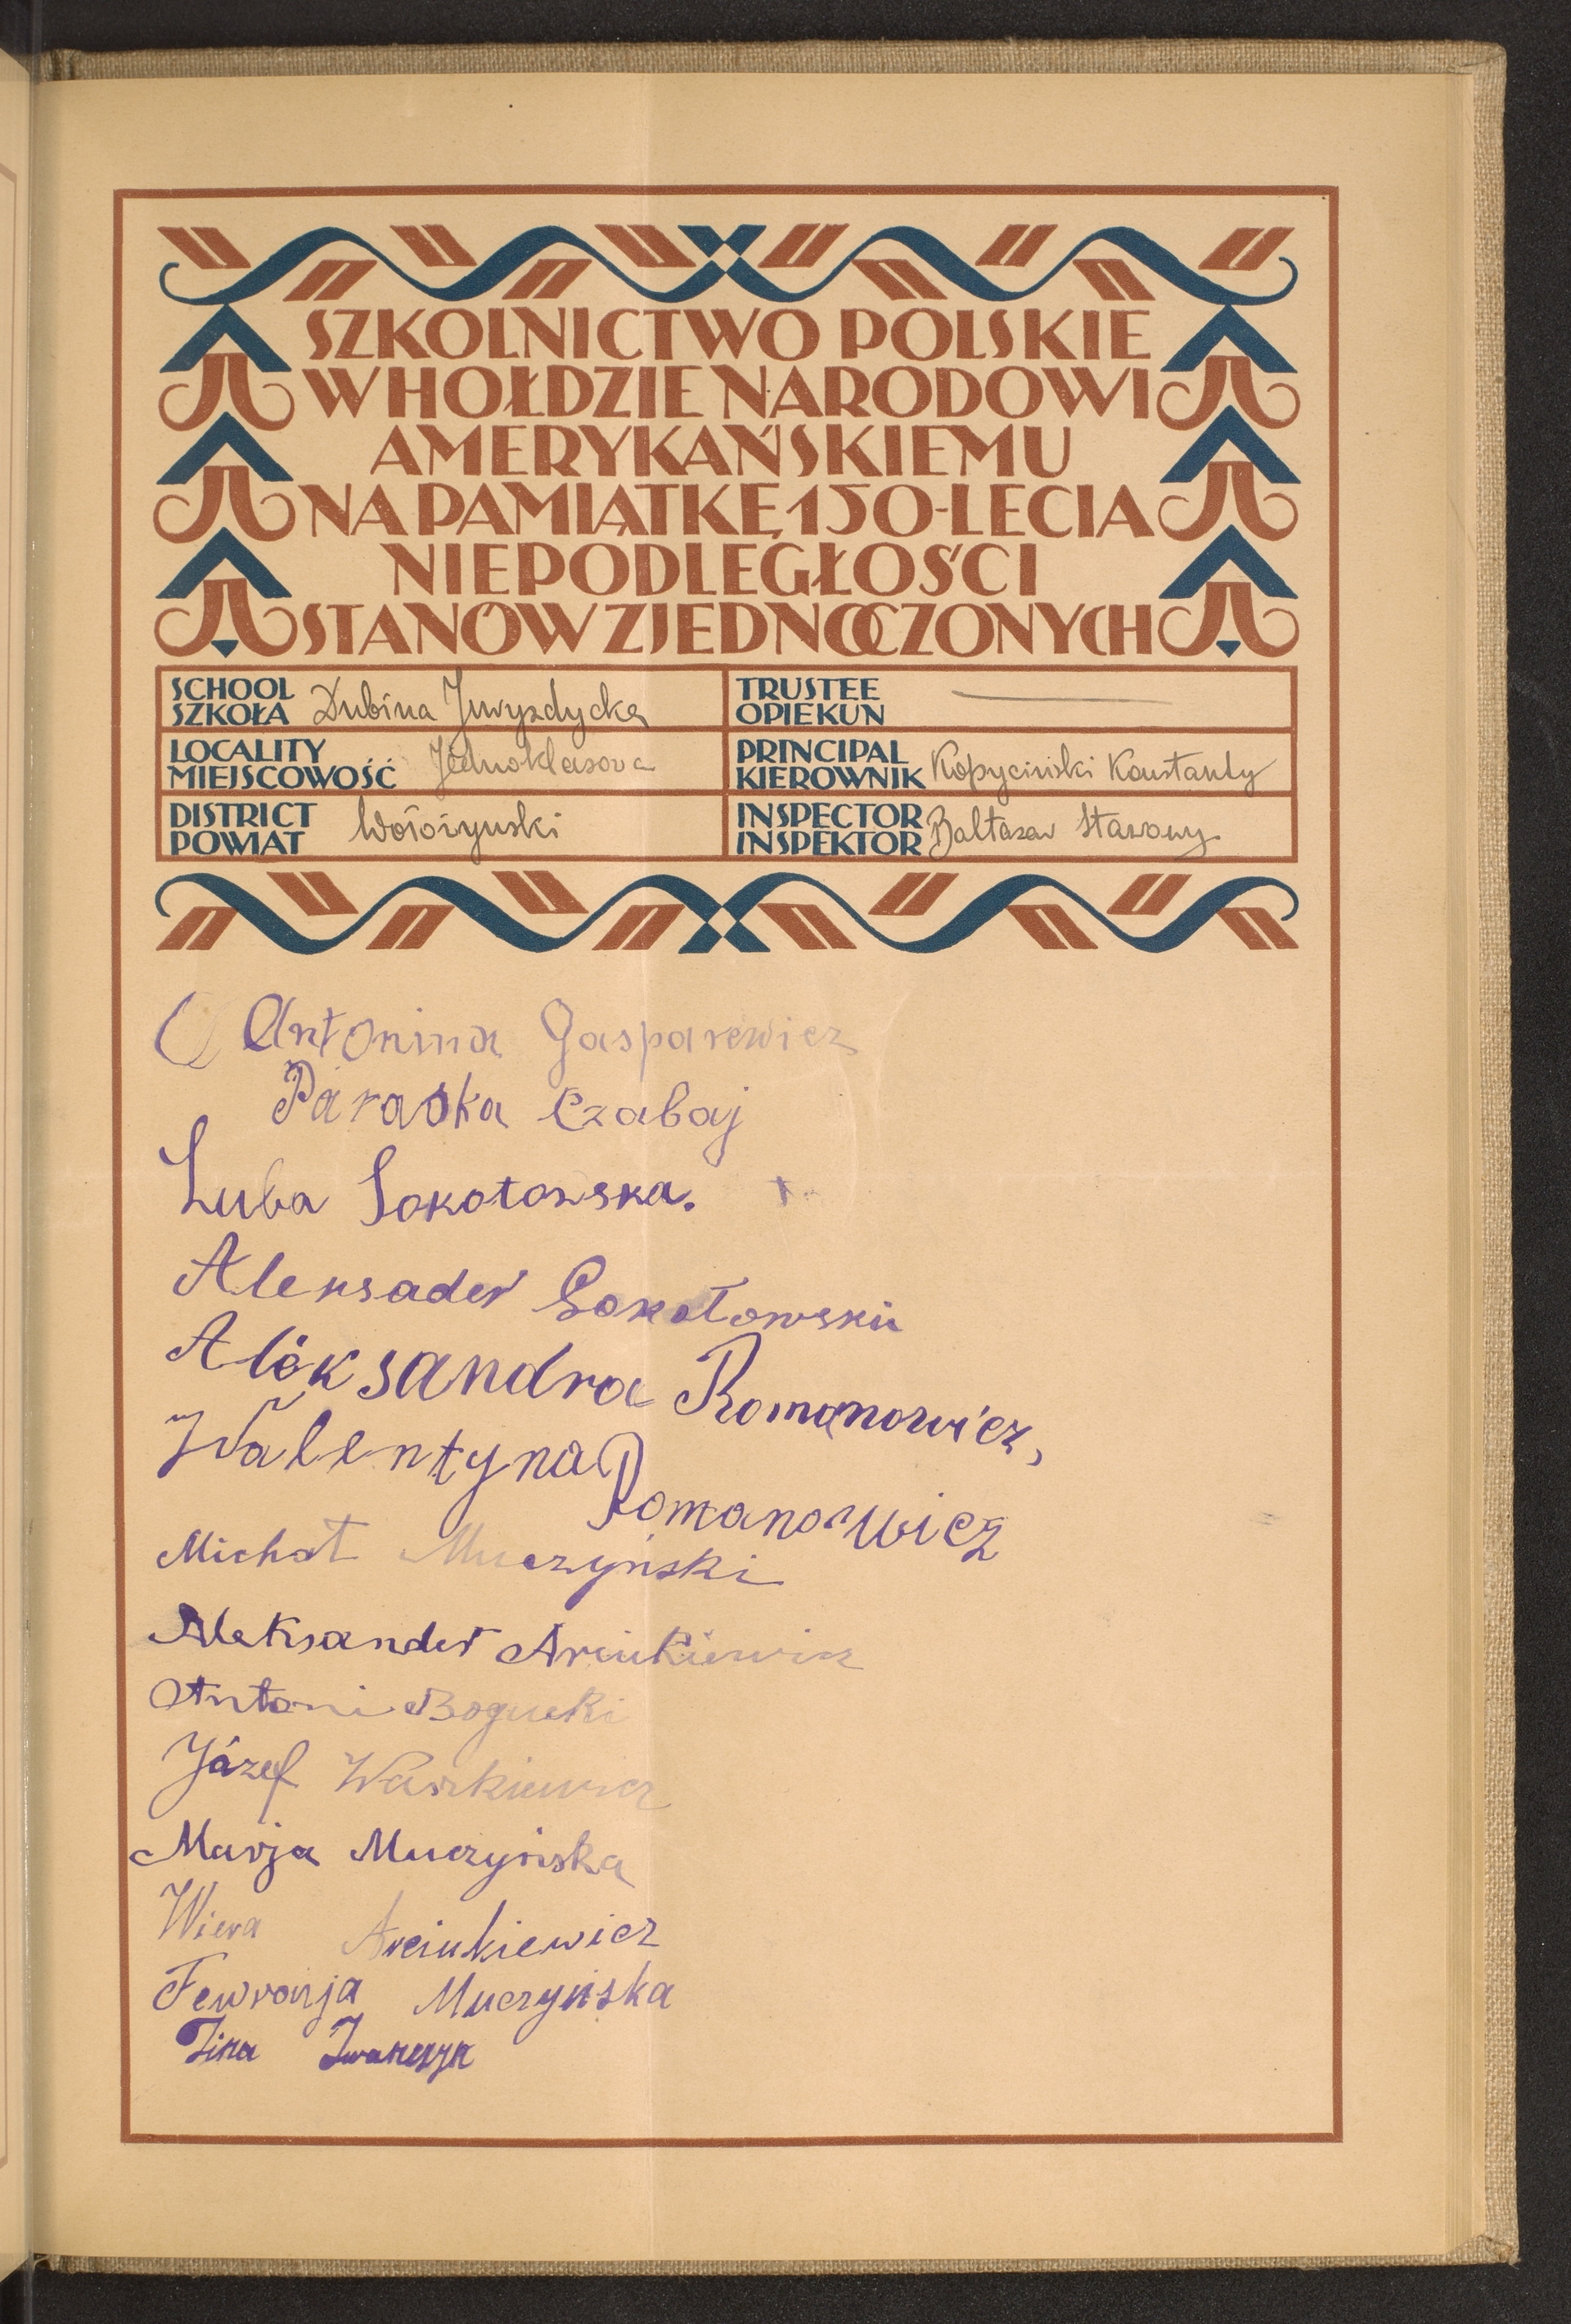 SZKOLNICTWO POLSKIE
W HOŁDZIE NARODOWI
AMERYKAŃSKIEMU
NA PAMIĄTKĘ 150-LECIA
NIEPODLEGŁOŚCI
STANÓW ZJEDNOCZONYCH
SCHOOL
SZKOŁA Dubina Juryzdycka
TRUSTEE
OPIEKUN
LOCALITY
MIEJSCOWOŚĆ Jednoklasowa
PRINCIPAL
KIEROWNIK Kopyciński Konstanty
DISTRICT
POWIAT Wołożyński
INSPECTOR
INSPEKTOR Baltazar Starowy
Antonina Gasparewicz
Paraska Czabaj
Luba Sokołowska.
Aleksader Sokołowski
Aleksandra Romanowicz,
Walentyna
Romanowicz
Michał Muczyński
Aleksander Arciukiewicz
Antoni Bogucki
Józef Waszkiewicz
Marja Muczyńska
Wiera Arciukiewicz
Fewronja Muczyńska
Zina